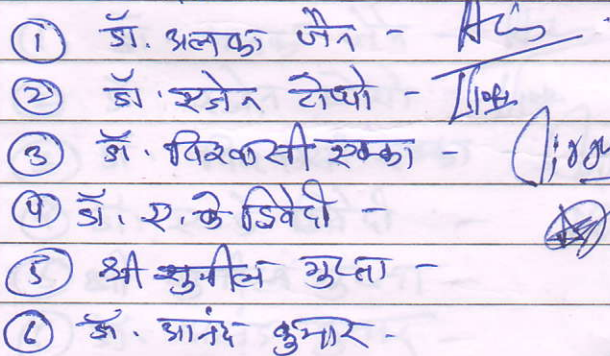 ① डॉ. अलका जैन -
② डॉ. राजेन टोप्पो -
③ डॉ. विश्वासी एक्का -
④ डॉ. ए. के द्विवेदी -
⑤ श्री सुनील गुप्ता -
⑥ डॉ. आनंद कुमार -